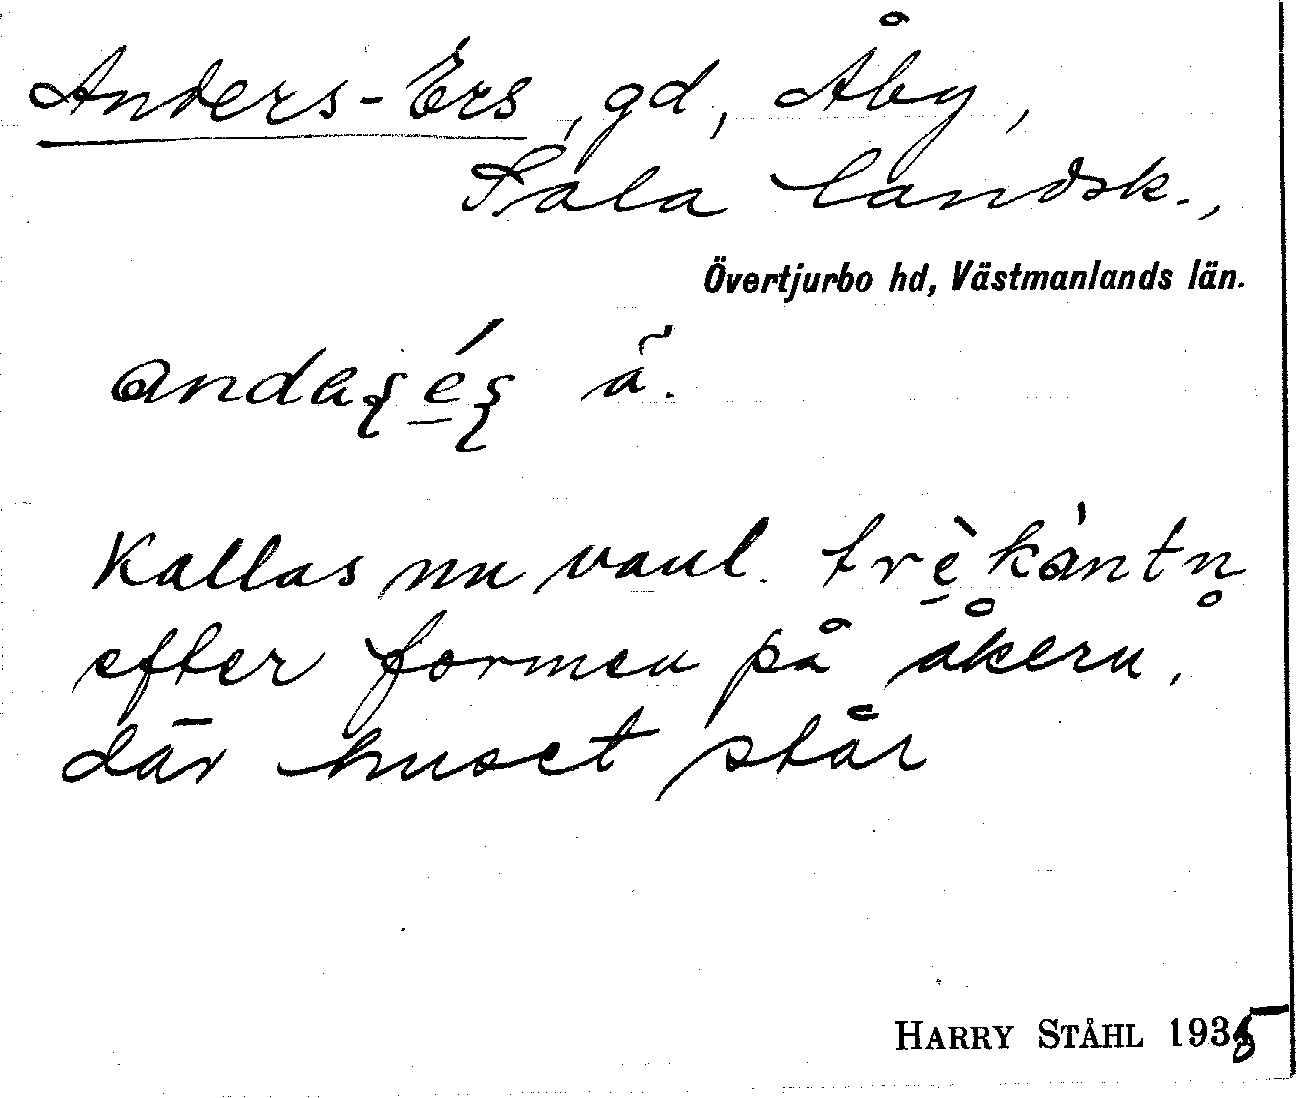 Anders-Ers, gd, Åby,
Sala landsk.,
Övertjurbo hd, Västmanlands län.
Kallas nu vanl. trèkàntn̥
efter formen på åkern,
där huset står
HARRY STÅHL 1935